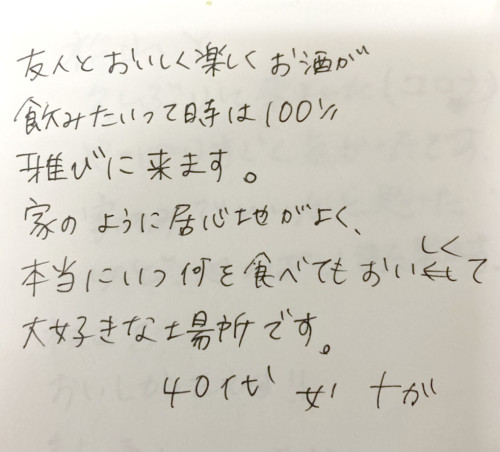 友人とおいしく楽しくお酒が
飲みたいって時は100%
雅びに来ます。
家のように居心地がよく、
本当にいつ何を食べてもおいしくて
大好きな場所です。
40代 女 十が